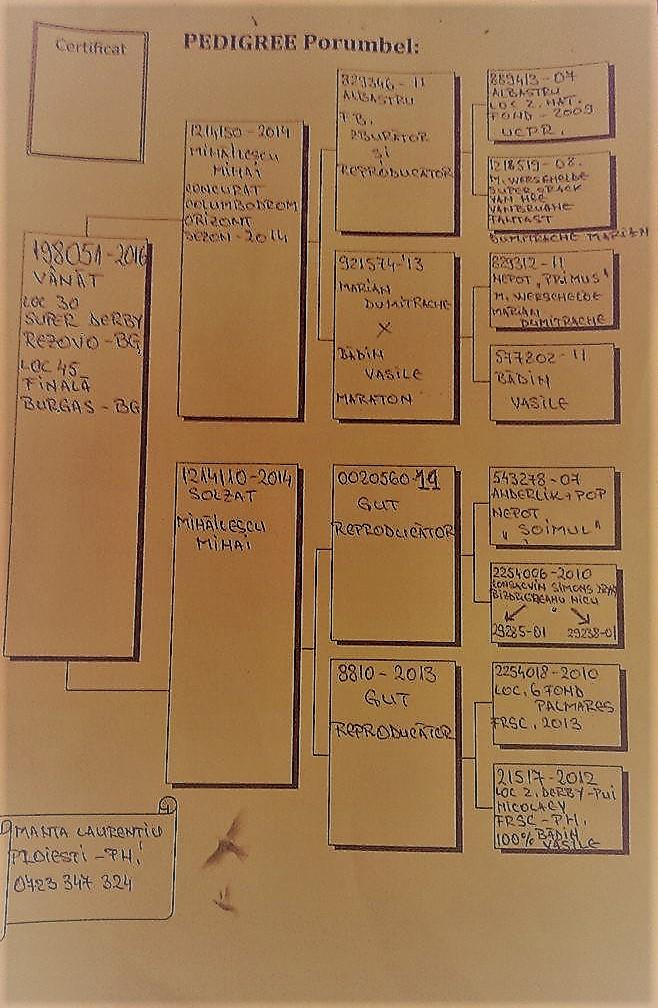 Certificat
PEDIGREE Porumbel:
198051-2016
VÂNĂT
LOC 30
SUPER DERBY
REZOVO-BG
LOC 45
FINALĂ
BURGAS-BG
1214150-2014
MIHĂILESCU
MIHAI
CONCURAT
COLUMBODROM
ORIZONT
SEZON-2014
1214110-2014
SOLZAT
MIHĂILESCU
MIHAI
829346-11
ALBASTRU
F.B.
ZBURĂTOR
ȘI
REPRODUCĂTOR
921574-'13
MARIAN
DUMITRACHE
X
BĂDIN
VASILE
MARATON
0020560-11
GUT
REPRODUCĂTOR
8810-2013
GUT
REPRODUCĂTOR
889413-07
ALBASTRU
LOC 2. NAT.
FOND-2009
UCPR.
1218519-08.
M. WERSCHELDE
SUPER CRACK
VAN HEE
VANBRUANE
FANTAST
DUMITRACHE MARIAN
829312-11
NEPOT "PRIMUS"
M. WERSCHELDE
MARIAN
DUMITRACHE
577202-11
BĂDIN
VASILE
543278-07
ANDERLIK+POP
NEPOT
"SOIMUL"
2254006-2010
SIMONS
NICU
29285-01 29238-01
2254018-2010
LOC. 6 FOND
PALMARES
FRSC. 2013
21517-2012
LOC 2. DERBY-PUI
NICOLAEV
FRSC-PH.
100% BĂDIN
VASILE
MANTA LAURENTIU
PLOIESTI-PH.
0723 347 324